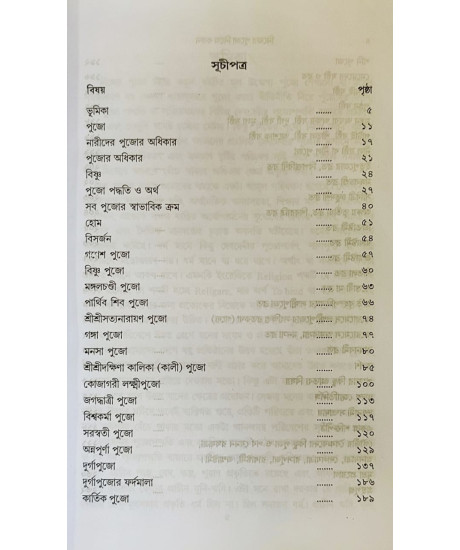 সূচীপত্র
বিষয় পৃষ্ঠা
ভূমিকা ....... ৫
পুজো ....... ১১
নারীদের পুজোর অধিকার ....... ১৭
পুজোর অধিকার ....... ২১
বিষ্ণু ....... ২৪
পুজো পদ্ধতি ও অর্থ ....... ২৭
সব পুজোর স্বাভাবিক ক্রম ....... ৪০
হোম ....... ৫১
বিসর্জন ....... ৫৪
গণেশ পুজো ....... ৫৭
বিষ্ণু পুজো ....... ৬০
মঙ্গলচণ্ডী পুজো ....... ৬৩
পার্থিব শিব পুজো ....... ৬৬
শ্রীশ্রীসত্যনারায়ণ পুজো ....... ৭৪
গঙ্গা পুজো ....... ৭৭
মনসা পুজো ....... ৮০
শ্রীশ্রীদক্ষিণা কালিকা (কালী) পুজো ....... ৮৫
কোজাগরী লক্ষ্মীপুজো ....... ১০০
জগদ্ধাত্রী পুজো ....... ১১৩
বিশ্বকর্মা পুজো ....... ১১৭
সরস্বতী পুজো ....... ১২০
অন্নপূর্ণা পুজো ....... ১২৯
দুর্গাপুজো ....... ১৩৭
দুর্গাপুজোর ফর্দমালা ....... ১৮৬
কার্তিক পুজো ....... ১৮৯